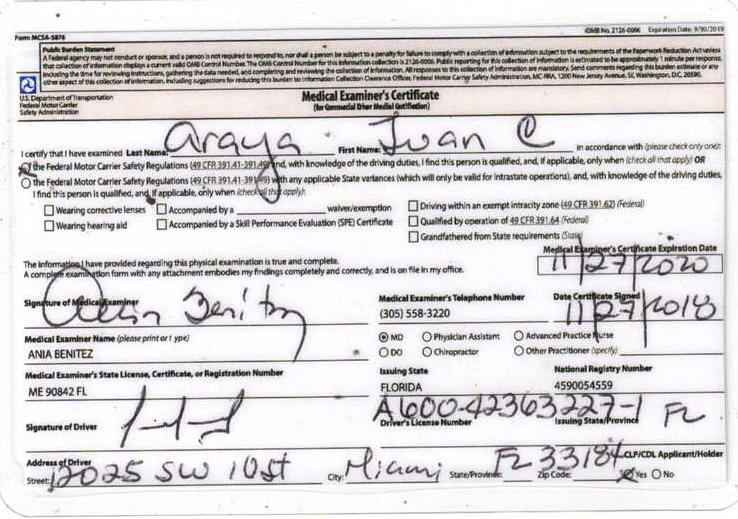 Form MCSA-5876 OMB No. 2126-0006 Expiration Date: 9/30/2019
Public Burden Statement
A Federal agency may not conduct or sponsor, and a person is not required to respond to, nor shall a person be subject to a penalty for failure to comply with a collection of information subject to the requirements of the Paperwork Reduction Act unless
that collection of information displays a current valid OMB Control Number. The OMB Control Number for this information collection is 2126-0006. Public reporting for this collection of information is estimated to be approximately 1 minute per response,
including the time for reviewing instructions, gathering the data needed, and completing and reviewing the collection of information. All responses to this collection of information are mandatory. Send comments regarding this burden estimate or any
other aspect of this collection of information, including suggestions for reducing this burden to: Information Collection Clearance Officer, Federal Motor Carrier Safety Administration, MC-RRA, 1200 New Jersey Avenue, SE, Washington, D.C. 20590.
U.S. Department of Transportation
Federal Motor Carrier
Safety Administration
Medical Examiner's Certificate
(for Commercial Driver Medical Certification)
I certify that I have examined Last Name: Araya First Name: Juan C in accordance with (please check only one):
the Federal Motor Carrier Safety Regulations (49 CFR 391.41-391.49) and, with knowledge of the driving duties, I find this person is qualified, and, if applicable, only when (check all that apply) OR
the Federal Motor Carrier Safety Regulations (49 CFR 391.41-391.49) with any applicable State variances (which will only be valid for intrastate operations), and, with knowledge of the driving duties,
I find this person is qualified, and, if applicable, only when (check all that apply):
Wearing corrective lenses Accompanied by a waiver/exemption Driving within an exempt intracity zone (49 CFR 391.62) (Federal)
Wearing hearing aid Accompanied by a Skill Performance Evaluation (SPE) Certificate Qualified by operation of 49 CFR 391.64 (Federal)
Grandfathered from State requirements (State)
The information I have provided regarding this physical examination is true and complete.
A complete examination form with any attachment embodies my findings completely and correctly, and is on file in my office.
Medical Examiner's Certificate Expiration Date
11/27/2020
Signature of Medical Examiner Benitez
Medical Examiner's Telephone Number
(305) 558-3220
Date Certificate Signed
11/27/2018
Medical Examiner Name (please print or type)
ANIA BENITEZ
MD Physician Assistant Advanced Practice Nurse
DO Chiropractor Other Practitioner (specify)
Medical Examiner's State License, Certificate, or Registration Number
ME 90842 FL
Issuing State
FLORIDA
National Registry Number
4590054559
Signature of Driver
A600-42363227-1 FL
Driver's License Number Issuing State/Province
Address of Driver
Street: 12025 SW 10st City: Miami State/Province: FL Zip Code: 33184 CLP/CDL Applicant/Holder
Yes No